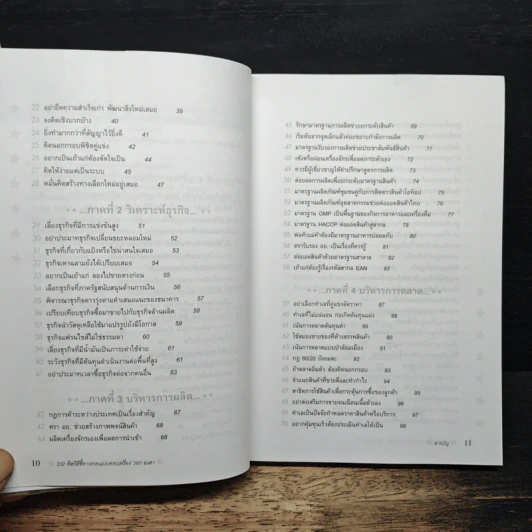 22 อย่ายึดความสำเร็จเก่า พัฒนาสิ่งใหม่เสมอ 39
23 จงคิดเชิงบวกบ้าง 40
24 ยิ่งทำมากกว่าที่สัญญาไว้ยิ่งดี 41
25 คิดนอกกรอบพิชิตคู่แข่ง 42
26 อยากเป็นเถ้าแก่ต้องตัดใจเป็น 44
27 คิดให้ง่ายแต่เป็นระบบ 45
28 หมั่นคิดสร้างทางเลือกใหม่อยู่เสมอ 47
...ภาคที่ 2 วิเคราะห์ธุรกิจ...
29 เลี่ยงธุรกิจที่มีการแข่งขันสูง 51
30 อย่าประมาทธุรกิจเปลี่ยนขยะหลอมใหม่ 52
31 ธุรกิจที่เกี่ยวกับแป้งหรือไข่น่าสนใจเสมอ 53
32 ธุรกิจเพาะลามยังได้เปรียบเสมอ 54
33 อยากเป็นเถ้าแก่ ลองไปขายตรงก่อน 55
34 เลือกธุรกิจที่ภาครัฐสนับสนุนด้านการเงิน 56
35 พิจารณาธุรกิจดาวรุ่งตามคำเสนอแนะของธนาคาร 57
36 เปรียบเทียบธุรกิจซื้อมาขายไปกับธุรกิจด้านผลิต 58
37 ธุรกิจนำวัสดุเหลือใช้มาแปรรูปยังมีโอกาส 59
38 ธุรกิจแฟรนไชส์ไม่ใช่ธรรมดา 60
39 เลี่ยงธุรกิจที่มีน้ำมันเป็นภาระค่าใช้จ่าย 61
40 ระวังธุรกิจที่มีต้นทุนดำเนินงานต่อพื้นที่สูง 61
41 อย่าประมาทเวลาซื้อธุรกิจต่อจากคนอื่น 63
...ภาคที่ 3 บริหารการผลิต...
42 กฎการค้าระหว่างประเทศเป็นเรื่องสำคัญ 67
43 ตรา อย. ช่วยสร้างภาพพจน์สินค้า 68
44 ผลิตเครื่องจักรเองเพื่อลดการนำเข้า 68
10
45 รักษามาตรฐานการผลิตช่วยยกระดับสินค้า 69
46 เริ่มต้นจากจุดเล็กแล้วค่อยขยายกำลังการผลิต 70
47 มาตรฐานรับรองการผลิตช่วยประชาสัมพันธ์สินค้า 71
48 เช้งหรือผ่อนเครื่องจักรเพื่อลดภาระตัวเอง 72
49 ควรมีผู้เชี่ยวชาญให้คำปรึกษาสูตรการผลิต 73
50 ต่อยอดการผลิตเพื่อยกระดับมาตรฐานสินค้า 74
51 มาตรฐานผลิตภัณฑ์ชุมชนคู่กับการคัดดาวสินค้าโอท็อป 75
52 มาตรฐานผลิตภัณฑ์อุตสาหกรรมช่วยต่อยอดสินค้าไทย 76
53 มาตรฐาน GMP เป็นพื้นฐานของกิจการอาหารและเครื่องดื่ม 77
54 มาตรฐาน HACCP ต่อยอดสินค้าสู่สากล 78
55 พ่อค้าแม่ค้าต้องมีมาตรฐานอาหารปลอดภัย 80
56 ตรารับรอง อย. เป็นเรื่องที่ควรรู้ 81
57 ต่อยอดสินค้าด้วยมาตรฐานฮาลาล 82
58 เถ้าแก่ต้องรู้เรื่องรหัสสากล EAN 83
...ภาคที่ 4 บริหารการตลาด...
59 อย่าเลือกทำเลที่คู่แข่งตัดราคา 87
60 ทำเลที่ไม่แน่นอน ก่อเกิดต้นทุนแฝง 88
61 เน้นการตลาดต้นทุนต่ำ 89
62 90
63 เน้นการตลาดแบบป่าล้อมเมือง 91
64 กฎ 80/20 ยังเฉลย 92
65 ถ้าตลาดอิ่มตัว ต้องคิดนอกกรอบ 93
66 จำแนกสินค้าที่ขายดีและทำกำไร 94
67 สาธิตการใช้สินค้าเพื่อกระตุ้นการซื้อของลูกค้า 95
68 อย่าส่งเสริมการขายจนเฉือนเนื้อตัวเอง 96
69 ทำเลเป็นปัจจัยกำหนดราคาสินค้าหรือบริการ 97
70 98
สารบัญ 11